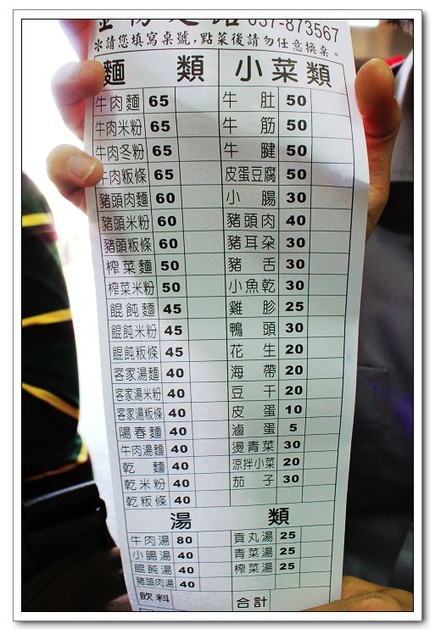 037-873567
＊請您填寫桌號,點菜後請勿任意換桌。
麵 類 小菜類
牛肉麵 65 牛肚 50
牛肉米粉 65 牛筋 50
牛肉冬粉 65 牛腱 50
牛肉粄條 65 皮蛋豆腐 50
豬頭肉麵 60 小腸 30
豬頭米粉 60 豬頭肉 40
豬頭粄條 60 豬耳朵 30
榨菜麵 50 豬舌 30
榨菜米粉 50 小魚乾 30
餛飩麵 45 雞胗 25
餛飩米粉 45 鴨頭 30
餛飩粄條 45 花生 20
客家湯麵 40 海帶 20
客家湯米粉 40 豆干 20
客家湯粄條 40 皮蛋 10
陽春麵 40 滷蛋 5
牛肉湯麵 40 燙青菜 30
乾麵 40 涼拌小菜 20
乾米粉 40 茄子 30
乾粄條 40
湯 類
牛肉湯 80 貢丸湯 25
小腸湯 40 青菜湯 25
餛飩湯 40 榨菜湯 25
豬頭肉湯 40
飲料 合計